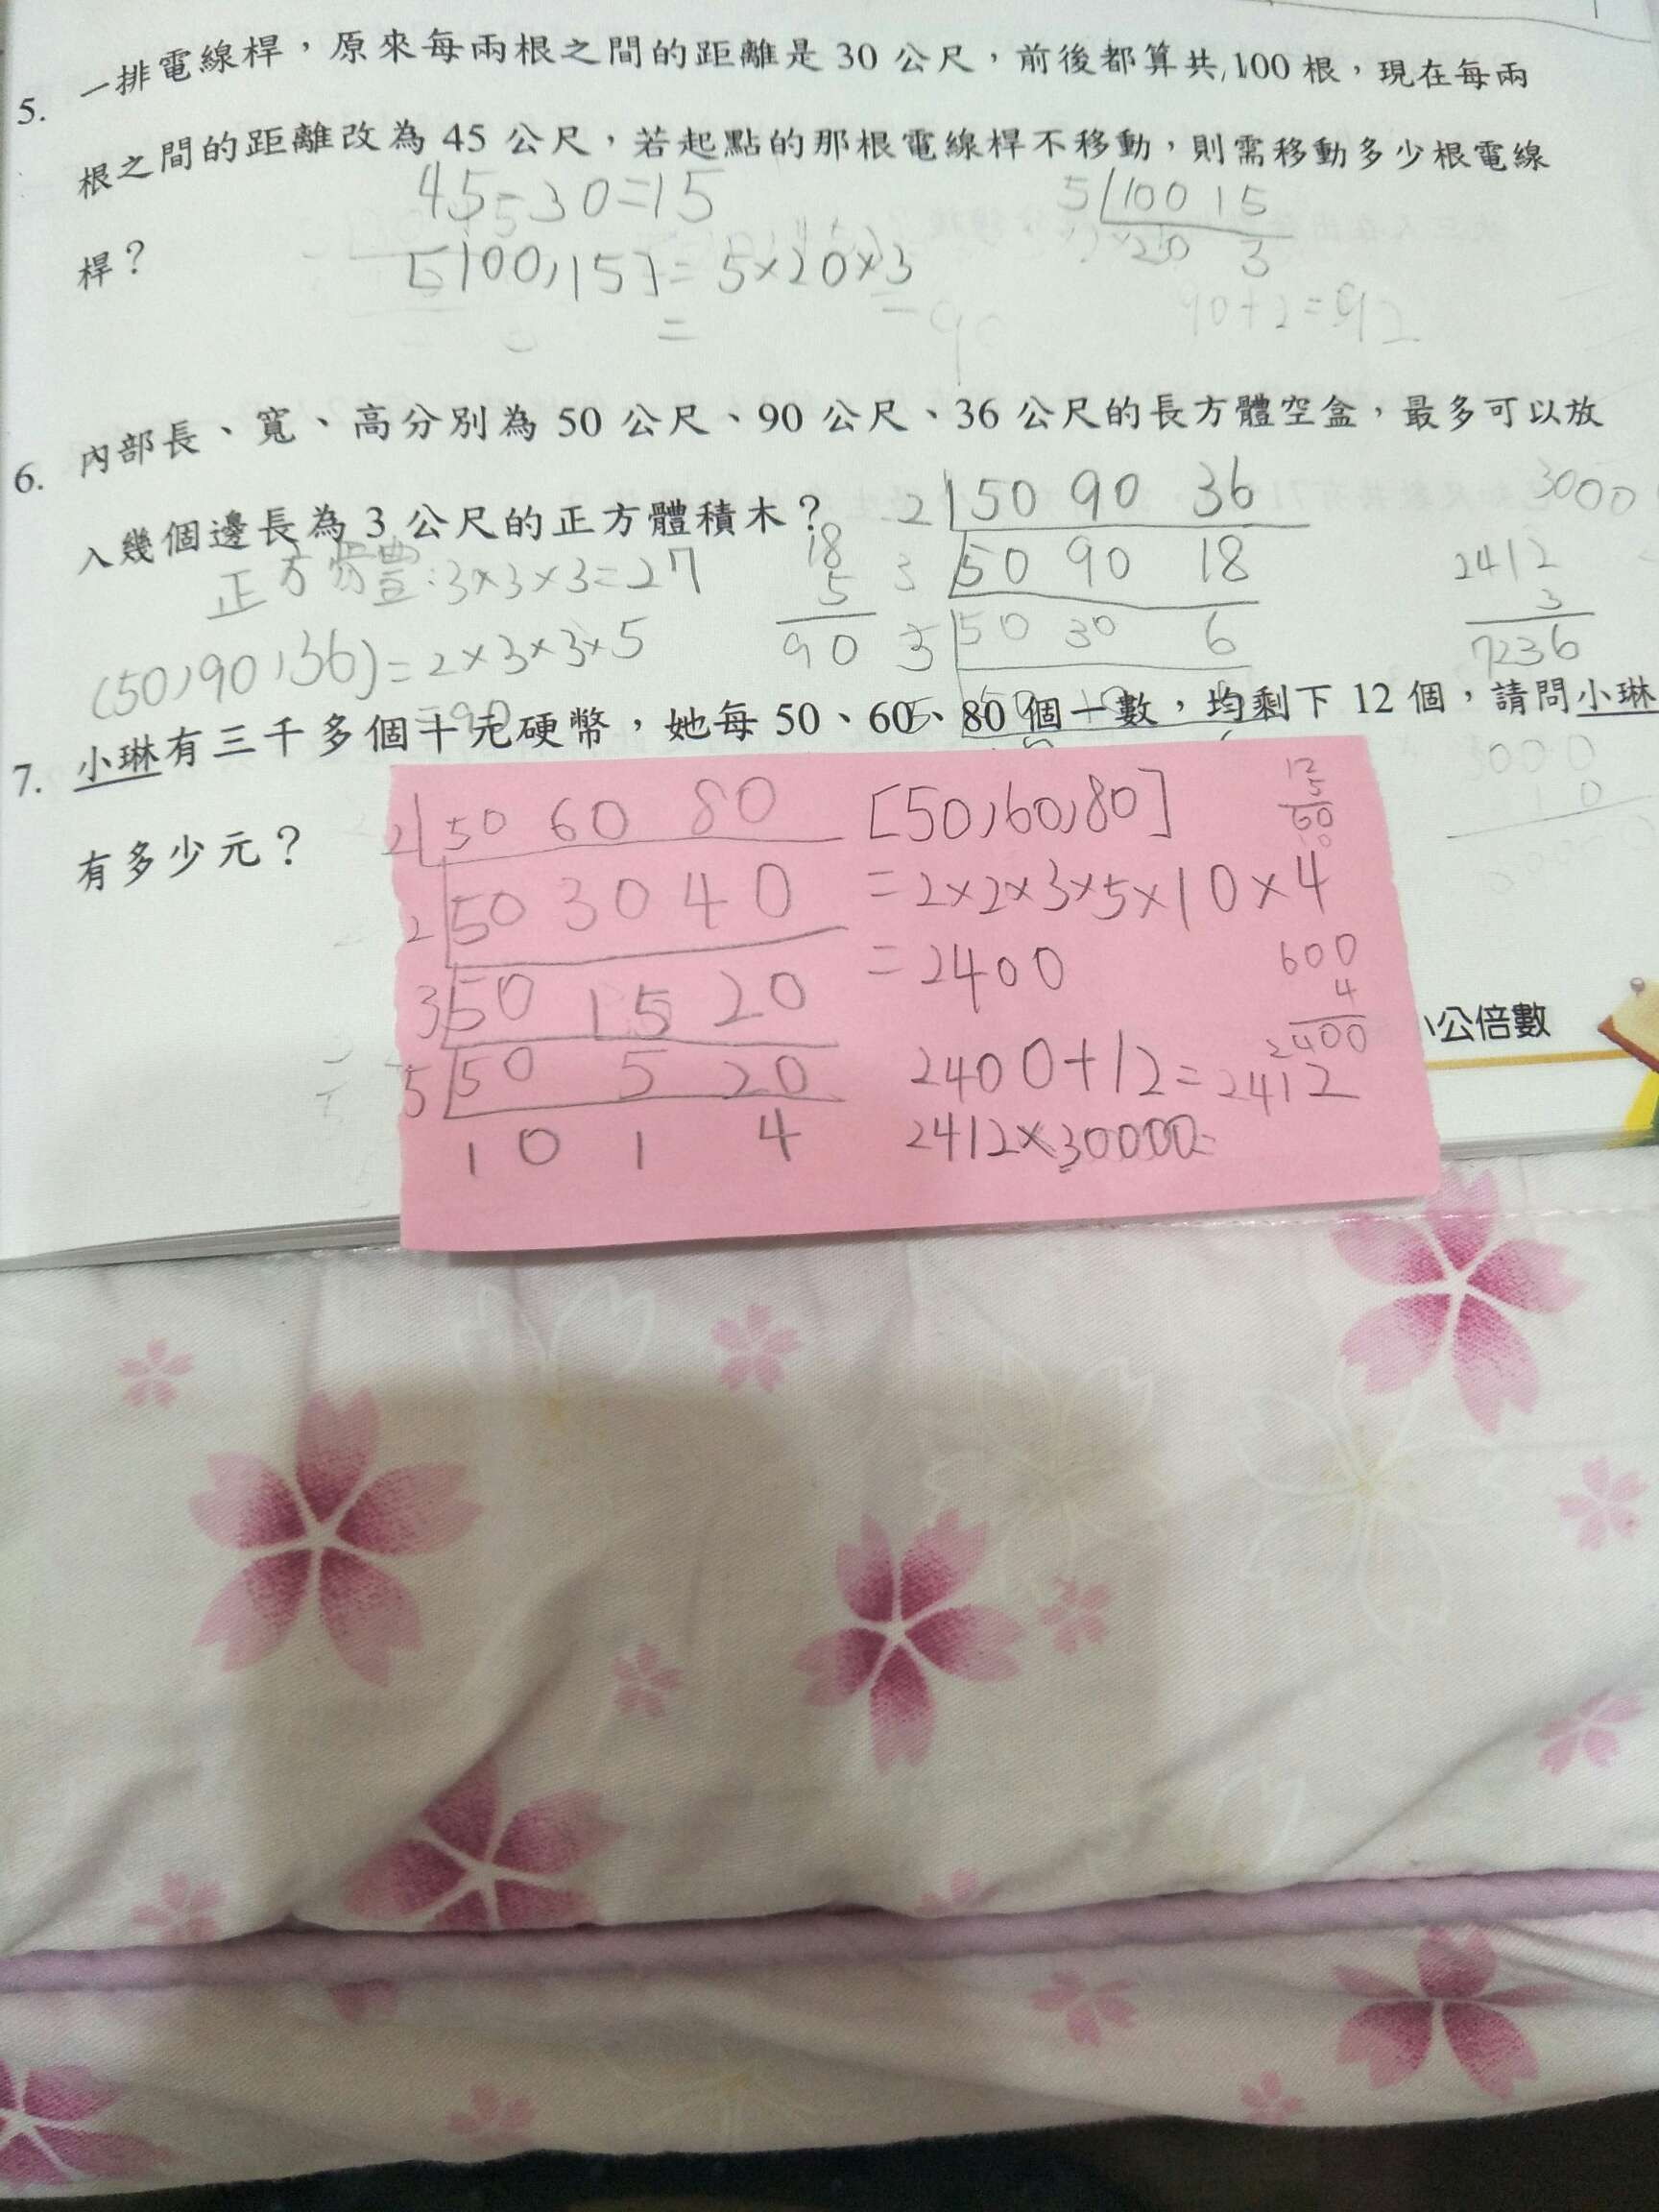 5. 一排電線桿，原來每兩根之間的距離是 30 公尺，前後都算共 100 根，現在每兩
根之間的距離改為 45 公尺，若起點的那根電線桿不移動，則需移動多少根電線
桿？
45-30=15
5 100 15
20 3
[100,15]=5×20×3
=
=90
90+2=92
6. 內部長、寬、高分別為 50 公尺、90 公尺、36 公尺的長方體空盒，最多可以放
入幾個邊長為 3 公尺的正方體積木？
2 50 90 36
3000
正方體:3×3×3=27
18
5
90
3 50 90 18
5 50 30 6
2412
3
7236
(50,90,36)=2×3×3×5
=90
7. 小琳有三千多個十元硬幣，她每 50、60、80 個一數，均剩下 12 個，請問小琳
有多少元？
2 50 60 80
2 50 30 40
3 50 15 20
5 50 5 20
10 1 4
[50,60,80]
=2×2×3×5×10×4
=2400
2400+12=2412
2412×30000=
12
5
60
600
4
2400
小公倍數